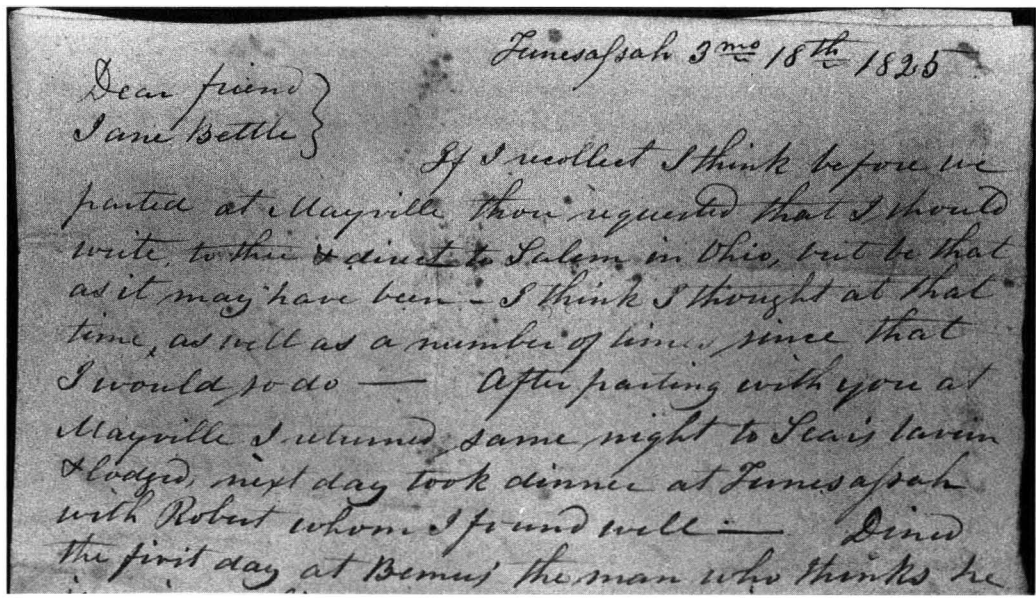 Tunesassah 3mo 18th 1825
Dear friend
Jane Bettle
If I recollect I think before we
parted at Mayville thou requested that I should
write, to thee & direct to Salem in Ohio, but be that
as it may have been - I think I thought at that
time, as well as a number of times since that
I would so do — After parting with you at
Mayville I returned same night to Sears tavern
& lodged, next day took dinner at Tunesassah
with Robert whom I found well — Dined
the first day at Bemus' the man who thinks he